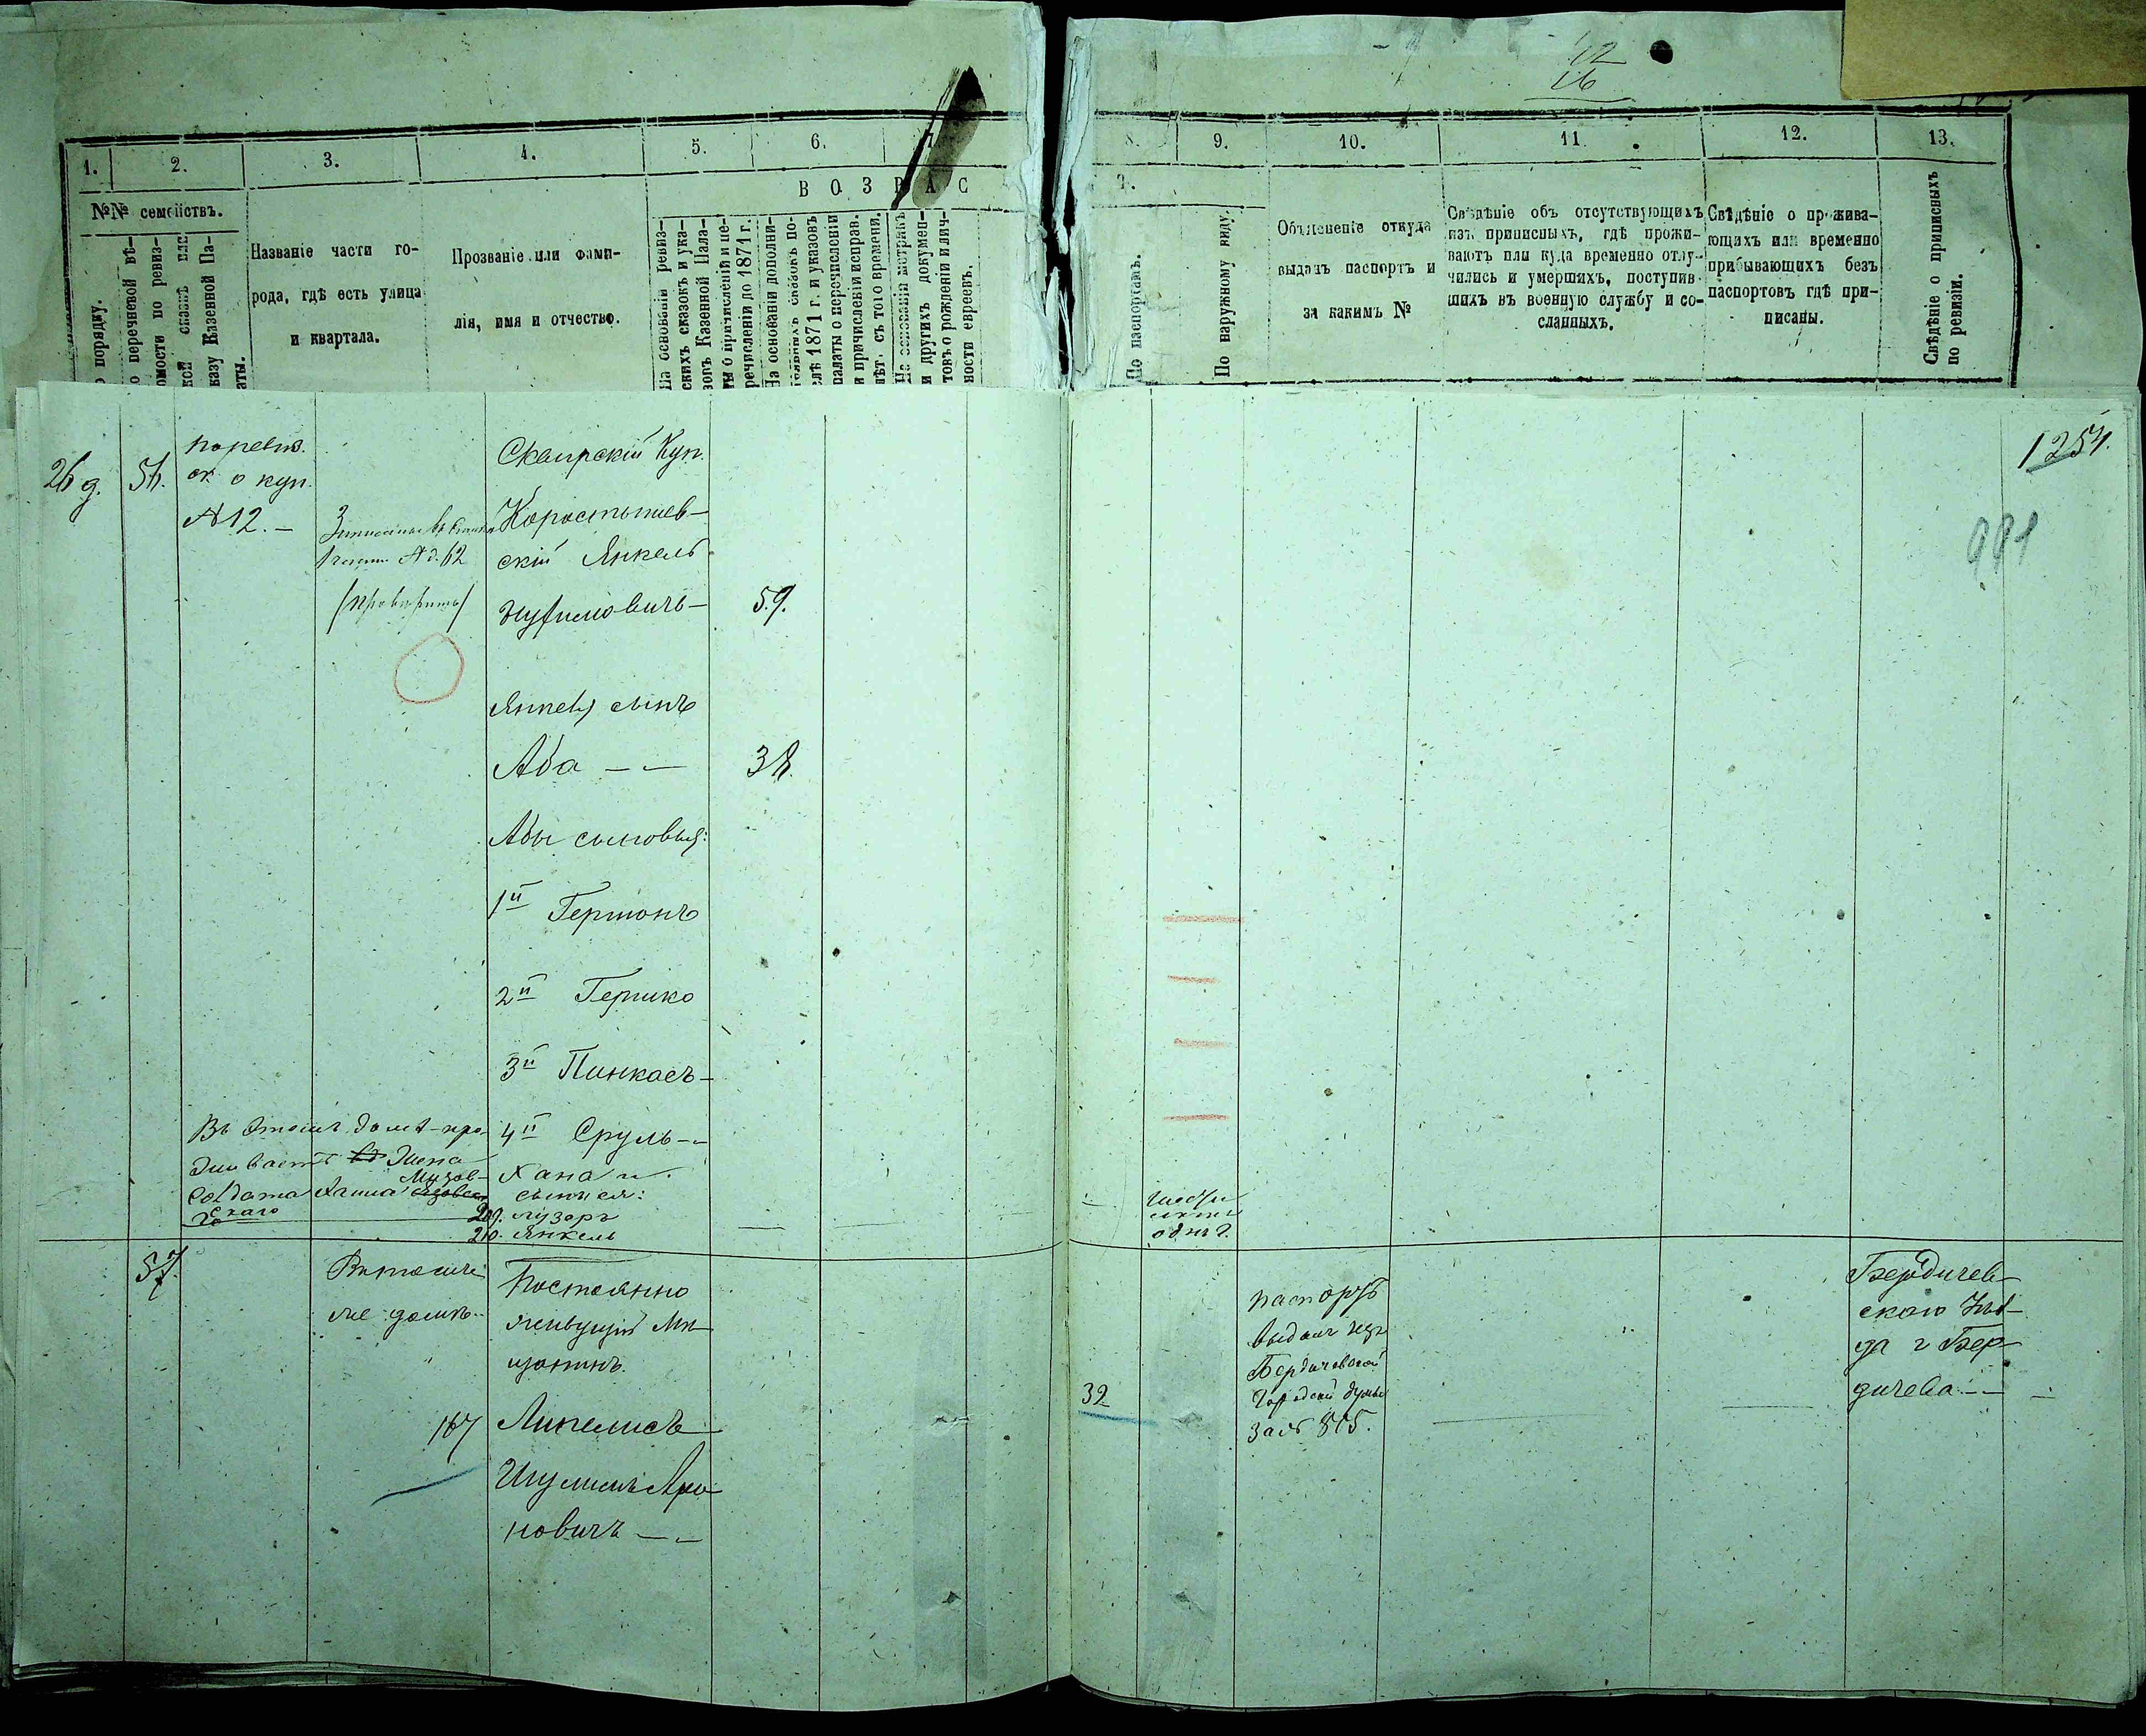 12
16
1.
2.
3.
4.
5.
6.
7.
8.
9.
10.
11.
12.
13.
ВОЗРАС
Т.
№№ семействъ.
о порядку.
о перечневой вѣ-
омости по ревиз-
кой сказкѣ или
казу Казенной Па-
аты.
Названіе части го-
рода, гдѣ есть улица
и квартала.
Прозваніе или фами-
лія, имя и отчество.
На основаніи ревиз-
скихъ сказокъ и ука-
зовъ Казенной Пала-
ты о причисленіи и пе-
речисленіи до 1871 г.
На основаніи дополни-
тельныхъ сказокъ по-
слѣ 1871 г. и указовъ
палаты о перечисленіи
и причисленіи исправ.
лѣт. съ того времени.
На основаніи метрикъ
и другихъ докумен-
товъ о рожденіи и лич-
ности евреевъ.
По паспортамъ.
По наружному виду.
Объясненіе откуда
выданъ паспортъ и
за какимъ №
Свѣдѣніе объ отсутствующихъ
изъ приписныхъ, гдѣ прожи-
ваютъ или куда временно отлу-
чились и умершихъ, поступив-
шихъ въ военную службу и со-
сланныхъ.
Свѣдѣніе о прожива-
ющихъ или временно
прибывающихъ безъ
паспортовъ гдѣ при-
писаны.
Свѣдѣніе о приписныхъ
по ревизіи.
1254.
991
26 д.
56.
по ревиз.
ск о куп.
№ 12. –
части № д. 62
(проверить)
Сквирскій Куп.
Коростышев-
скій Янкель
59.
Янкеля сынъ
Аба – –
38.
Абы сыновья:
1й Гершонъ
2й Гершко
3й Пинкасъ –
4й Сруль – –
Въ этомъ домѣ про-
живаетъ жена
солдата
скаго
Хана и
сыны ея:
209. Лузоръ
210. Янкель
одна г.
57.
Въ томъ
же домѣ.
Постоянно
живущій Мѣ-
щанинъ.
167
Шулимъ Аро-
новичъ – –
32
паспортъ
выданъ изъ
Бердичевской
Городской думы
за № 875.
Бердичев-
скаго Уѣз-
да г Бер-
дичева – –